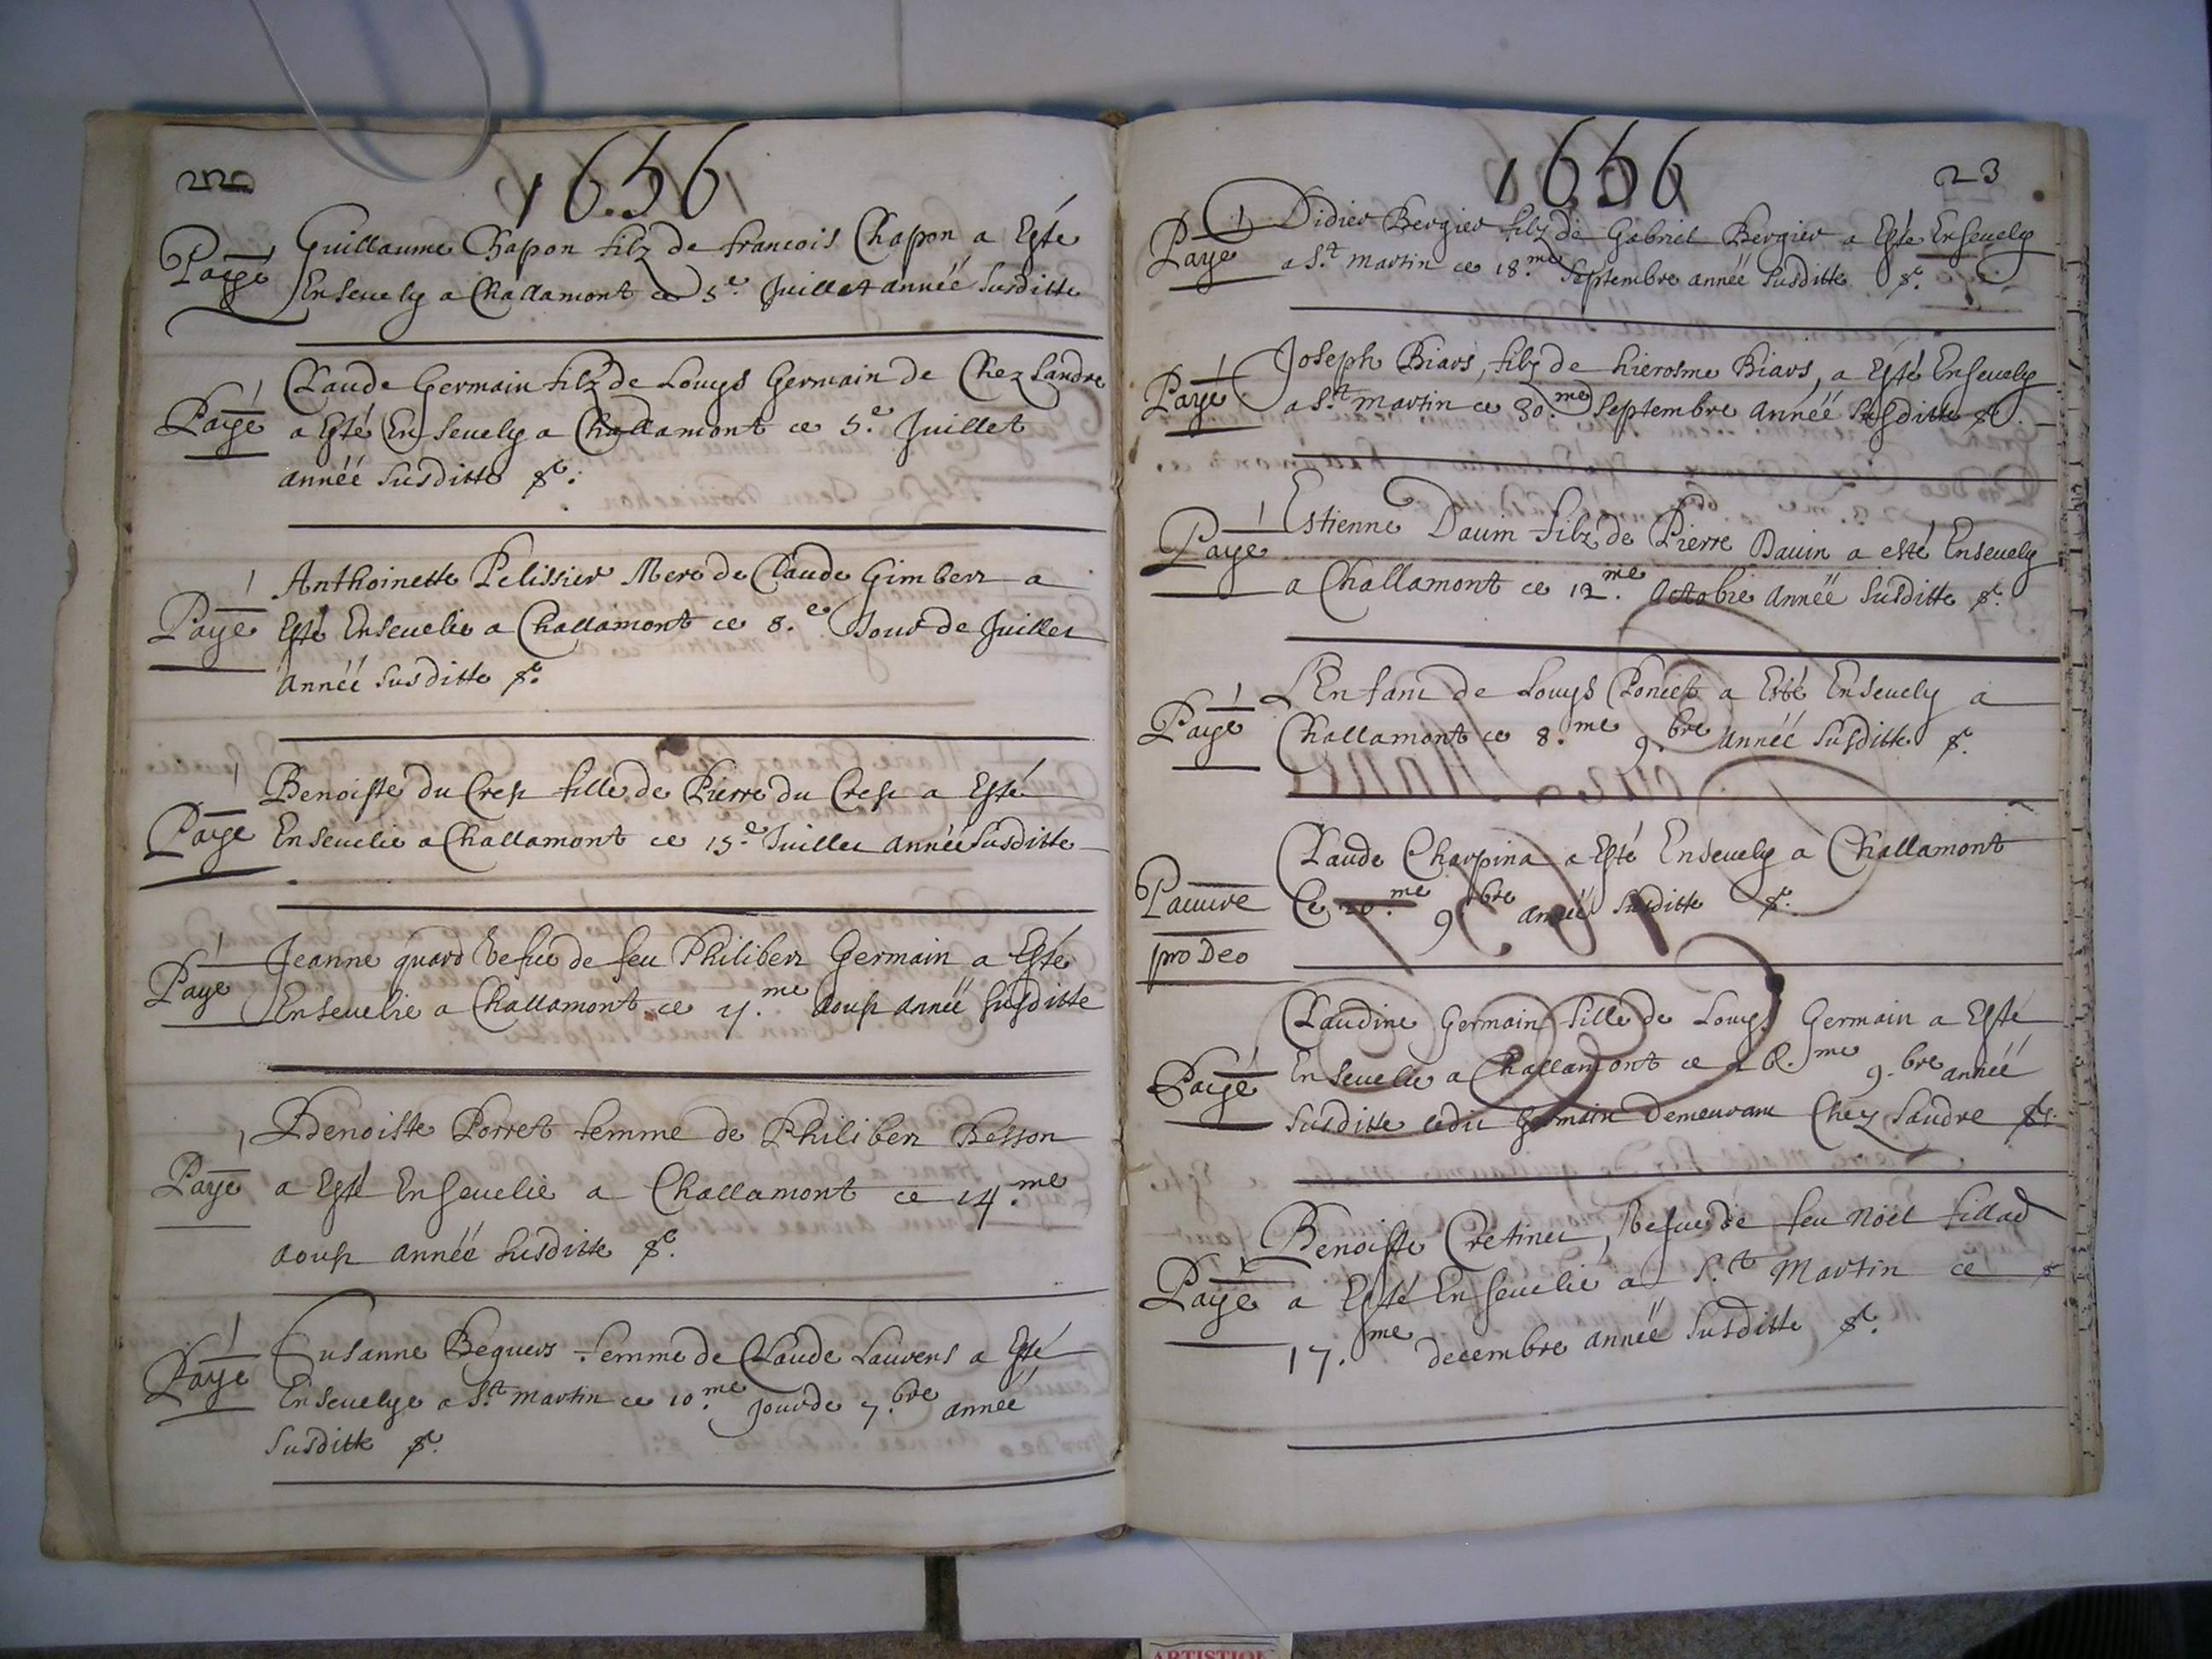 22
1656
Payé
Guillaume Chapon filz de francois Chapon a Esté
Enseuely a Challamont ce 5.e Juillet année susditte
Payé
Claude Germain filz de Louys Germain de Chez Landre
a Esté Enseuely a Challamont ce 5.e Juillet
année susditte &c.
Payé
Anthoinette Pelissier Mere de Claude Gimbert a
Esté Enseuelie a Challamont ce 8.e Jour de Juillet
année susditte &c.
Payé
Benoiste du Crest fille de Pierre du Crest a Esté
Enseuelie a Challamont ce 15.e Juillet année susditte
Payé
Jeanne quard Vefue de feu Philibert Germain a Esté
Enseuelie a Challamont ce 4.me aoust année susditte
Payé
Benoiste Porret femme de Philibert Besson
a Esté Enseuelie a Challamont ce 14.me
aoust année susditte &c.
Payé
Susanne Beguers femme de Claude Laurens a Esté
Enseuelye a St. martin ce 10.me Jour de 7.bre année
susditte &c.
1656
23
Payé
Didier Bergier filz de Gabriel Bergier a Esté Enseuely
a St. martin ce 18.me Septembre année susditte &c.
Payé
Joseph Biars, filz de hierosme Biars, a Esté Enseuely
a St. martin ce 30.me Septembre année susditte &c.
Payé
Estienne Dauin filz de Pierre Dauin a esté Enseuely
a Challamont ce 12.me Octobre année susditte &c.
Payé
L'Enfant de Louys Poncet a Esté Enseuely a
Challamont ce 8.me 9.bre année susditte &c.
Pauure
pro Deo
Claude Charpina a Esté Enseuely a Challamont
Ce 20.me 9.bre année susditte &c.
Payé
Claudine Germain fille de Louys Germain a Esté
Enseuelie a Challamont ce .me 9.bre année
susditte ledit Germain demeurant Chez Landre &c.
Payé
Benoiste Cretinet, Vefue de feu Noël fillad
a Esté Enseuelie a St. Martin ce
17.me decembre année susditte &c.